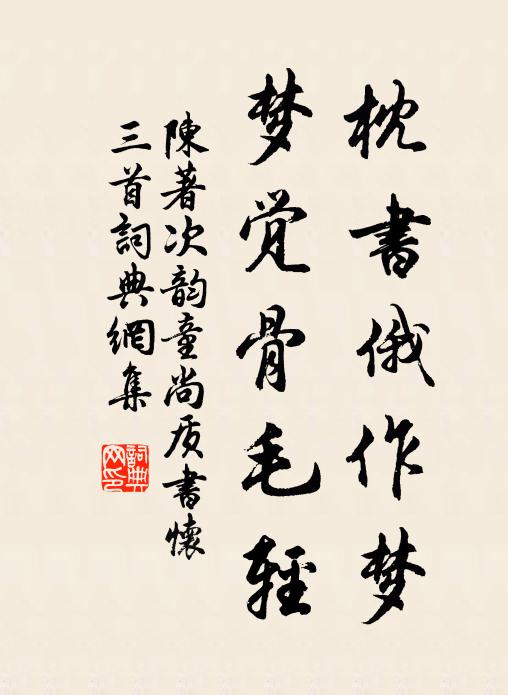 枕書俄作梦
梦觉骨毛輕
陳著次韵童尚质書懷
三首詞典網集
詞典
网印